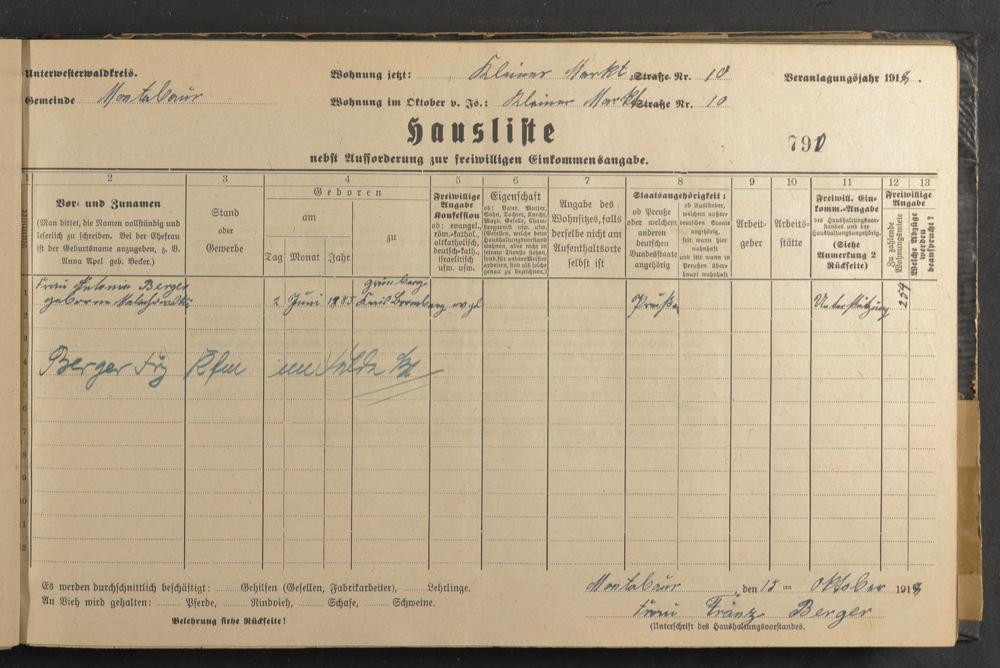 Unterwesterwaldkreis.
Wohnung jetzt: Kleiner Markt Straße Nr. 10
Veranlagungsjahr 1918.
Gemeinde Montabaur
Wohnung im Oktober v. Js.: Kleiner Markt Straße Nr. 10
Hausliste
790
nebst Aufforderung zur freiwilligen Einkommensangabe.
1 2 3 4 5 6 7 8 9 10 11 12 13
Vor- und Zunamen
(Man bittet, die Namen vollständig und
leserlich zu schreiben. Bei der Ehefrau
ist der Geburtsname anzugeben, z. B.
Anna Apel geb. Becker.)
Stand
oder
Gewerbe
Geboren
am
zu
Tag Monat Jahr
Freiwillige
Angabe
Konfession
ob: evangel.,
röm.-kathol.,
altkatholisch,
deutsch-kath.,
israelitisch
usw. usw.
Eigenschaft
ob: Vater, Mutter,
Sohn, Tochter, Knecht,
Magd, Geselle, Cham-
bregarnist usw. usw.
Angabe des
Wohnsitzes, falls
derselbe nicht am
Aufenthaltsorte
selbst ist
Staatsangehörigkeit:
ob Preuße
oder welchem
anderen
deutschen
Bundesstaate
angehörig
ob Ausländer,
welchem außer-
deutschen Staate
angehörig,
seit wann hier
wohnhaft
und seit wann in
Preußen über-
haupt wohnhaft
Arbeit-
geber
Arbeits-
stätte
Freiwill. Ein-
komm.-Angabe
des Haushaltungsvor-
standes und der
Haushaltungsangehörig.
(Siehe
Anmerkung 2
Rückseite)
Freiwillige
Angabe
Zu zahlende
Wohnungsmiete
Welche Abzüge
werden
beansprucht?
Frau Berger
geborene
2 Juni 1885
Kreis Bromberg
evgl
Preuße
Unterstützung
Berger Frz Kfm im Felde
Es werden durchschnittlich beschäftigt: Gehilfen (Gesellen, Fabrikarbeiter), Lehrlinge.
An Vieh wird gehalten: Pferde, Rindvieh, Schafe, Schweine.
Belehrung siehe Rückseite!
Montabaur, den 15 ten Oktober 1918
Frau Franz Berger
(Unterschrift des Haushaltungsvorstandes.